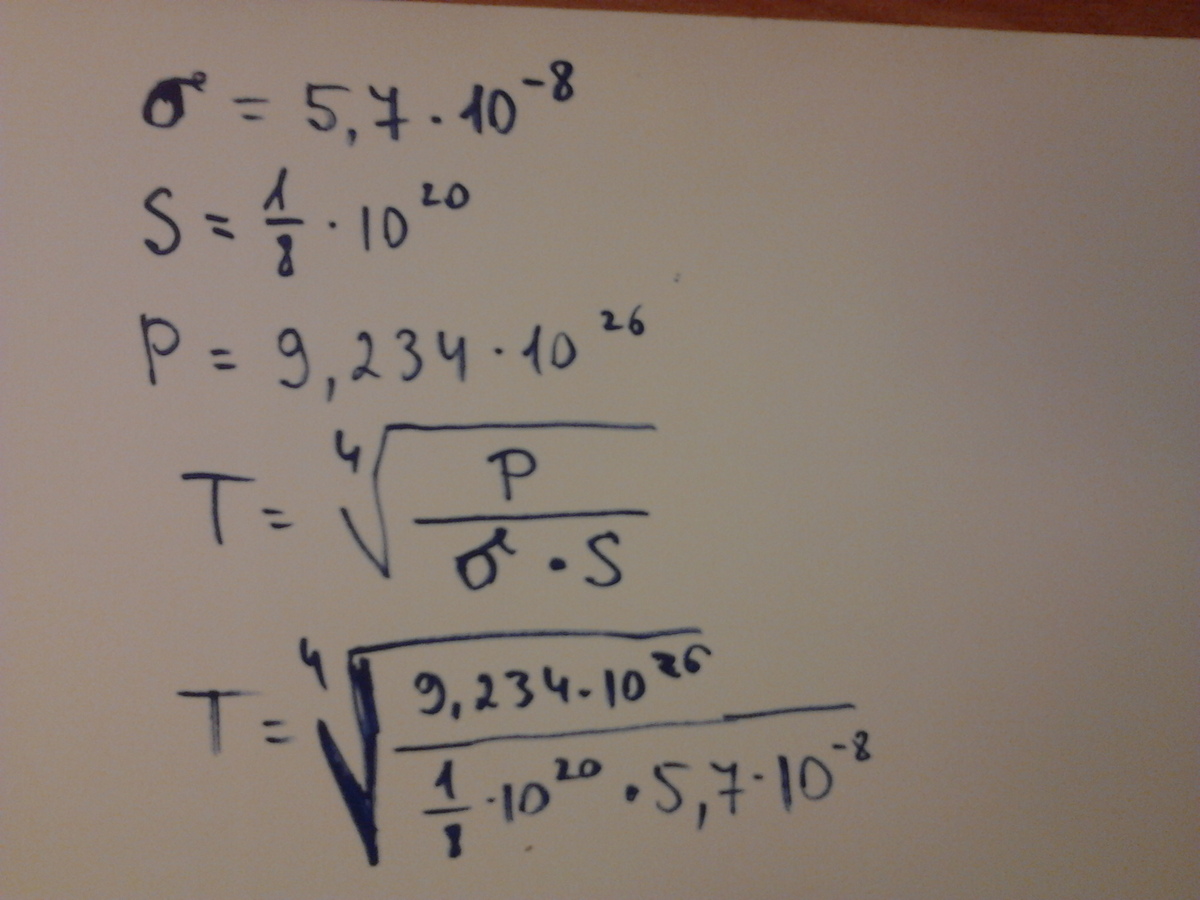 σ = 5,7 · 10⁻⁸
S = 1/8 · 10²⁰
P = 9,234 · 10²⁶
T = ⁴√(P / (σ · S))
T = ⁴√(9,234 · 10²⁶ / (1/8 · 10²⁰ · 5,7 · 10⁻⁸))